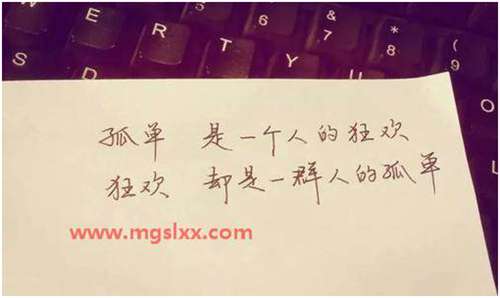 W E R T Y U
^ 6 & 7 * 8 ( 9
S D O L
孤单 是一个人的狂欢
狂欢 却是一群人的孤单
www.mgslxx.com